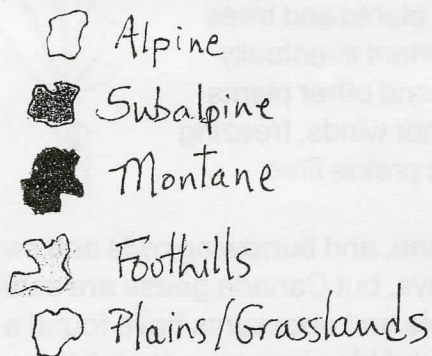 Alpine
Subalpine
Montane
Foothills
Plains/Grasslands